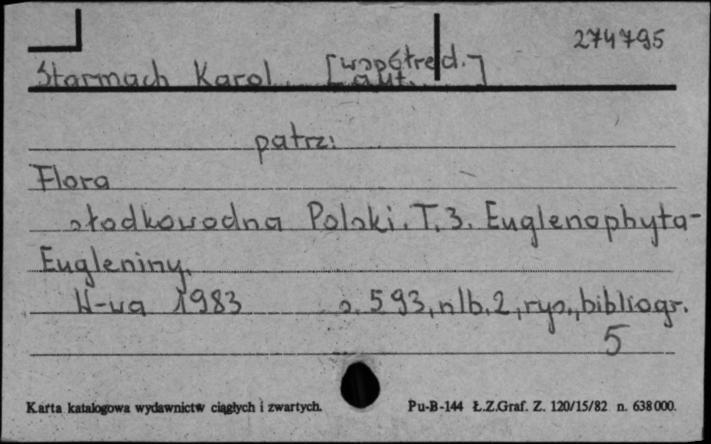 274795
Starmach Karol. [współred.
aut.]
patrz:
Flora
słodkowodna Polski. T. 3. Euglenophyta-
Eugleniny.
W-wa 1983 s. 593, nlb. 2, rys., bibliogr.
5
Karta katalogowa wydawnictw ciągłych i zwartych. Pu-B-144 Ł.Z.Graf. Z. 120/15/82 n. 638000.